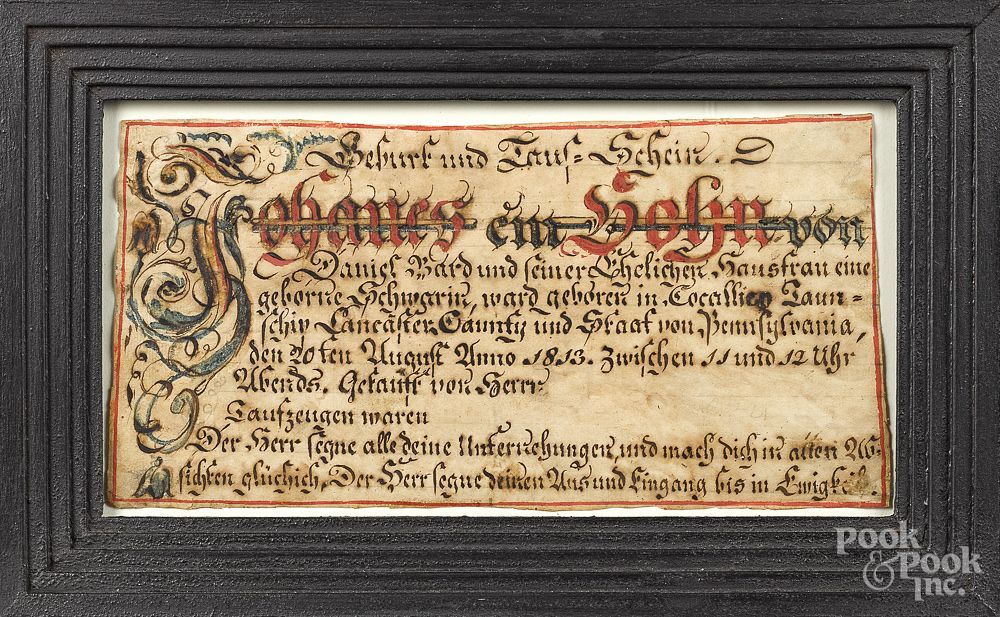 Geburt und Tauf=Schein.
Johanes ein Sohn von
Daniel Bard und seiner Ehelichen Hausfrau eine
geborne Schwarin, ward geboren in Cocallico Taun=
schip Lancaster Caunty und Staat von Pennsylvania,
den 20ten August Anno 1813. zwischen 11 und 12 Uhr
Abends. Getauft von Herr
Taufzeugen waren
Der Herr segne alle deine Unternehungen und mach dich in allen Ab=
sichten glücklich, Der Herr segne deinen Aus und Eingang bis in Ewigkeit.
POOK
& POOK
INC.